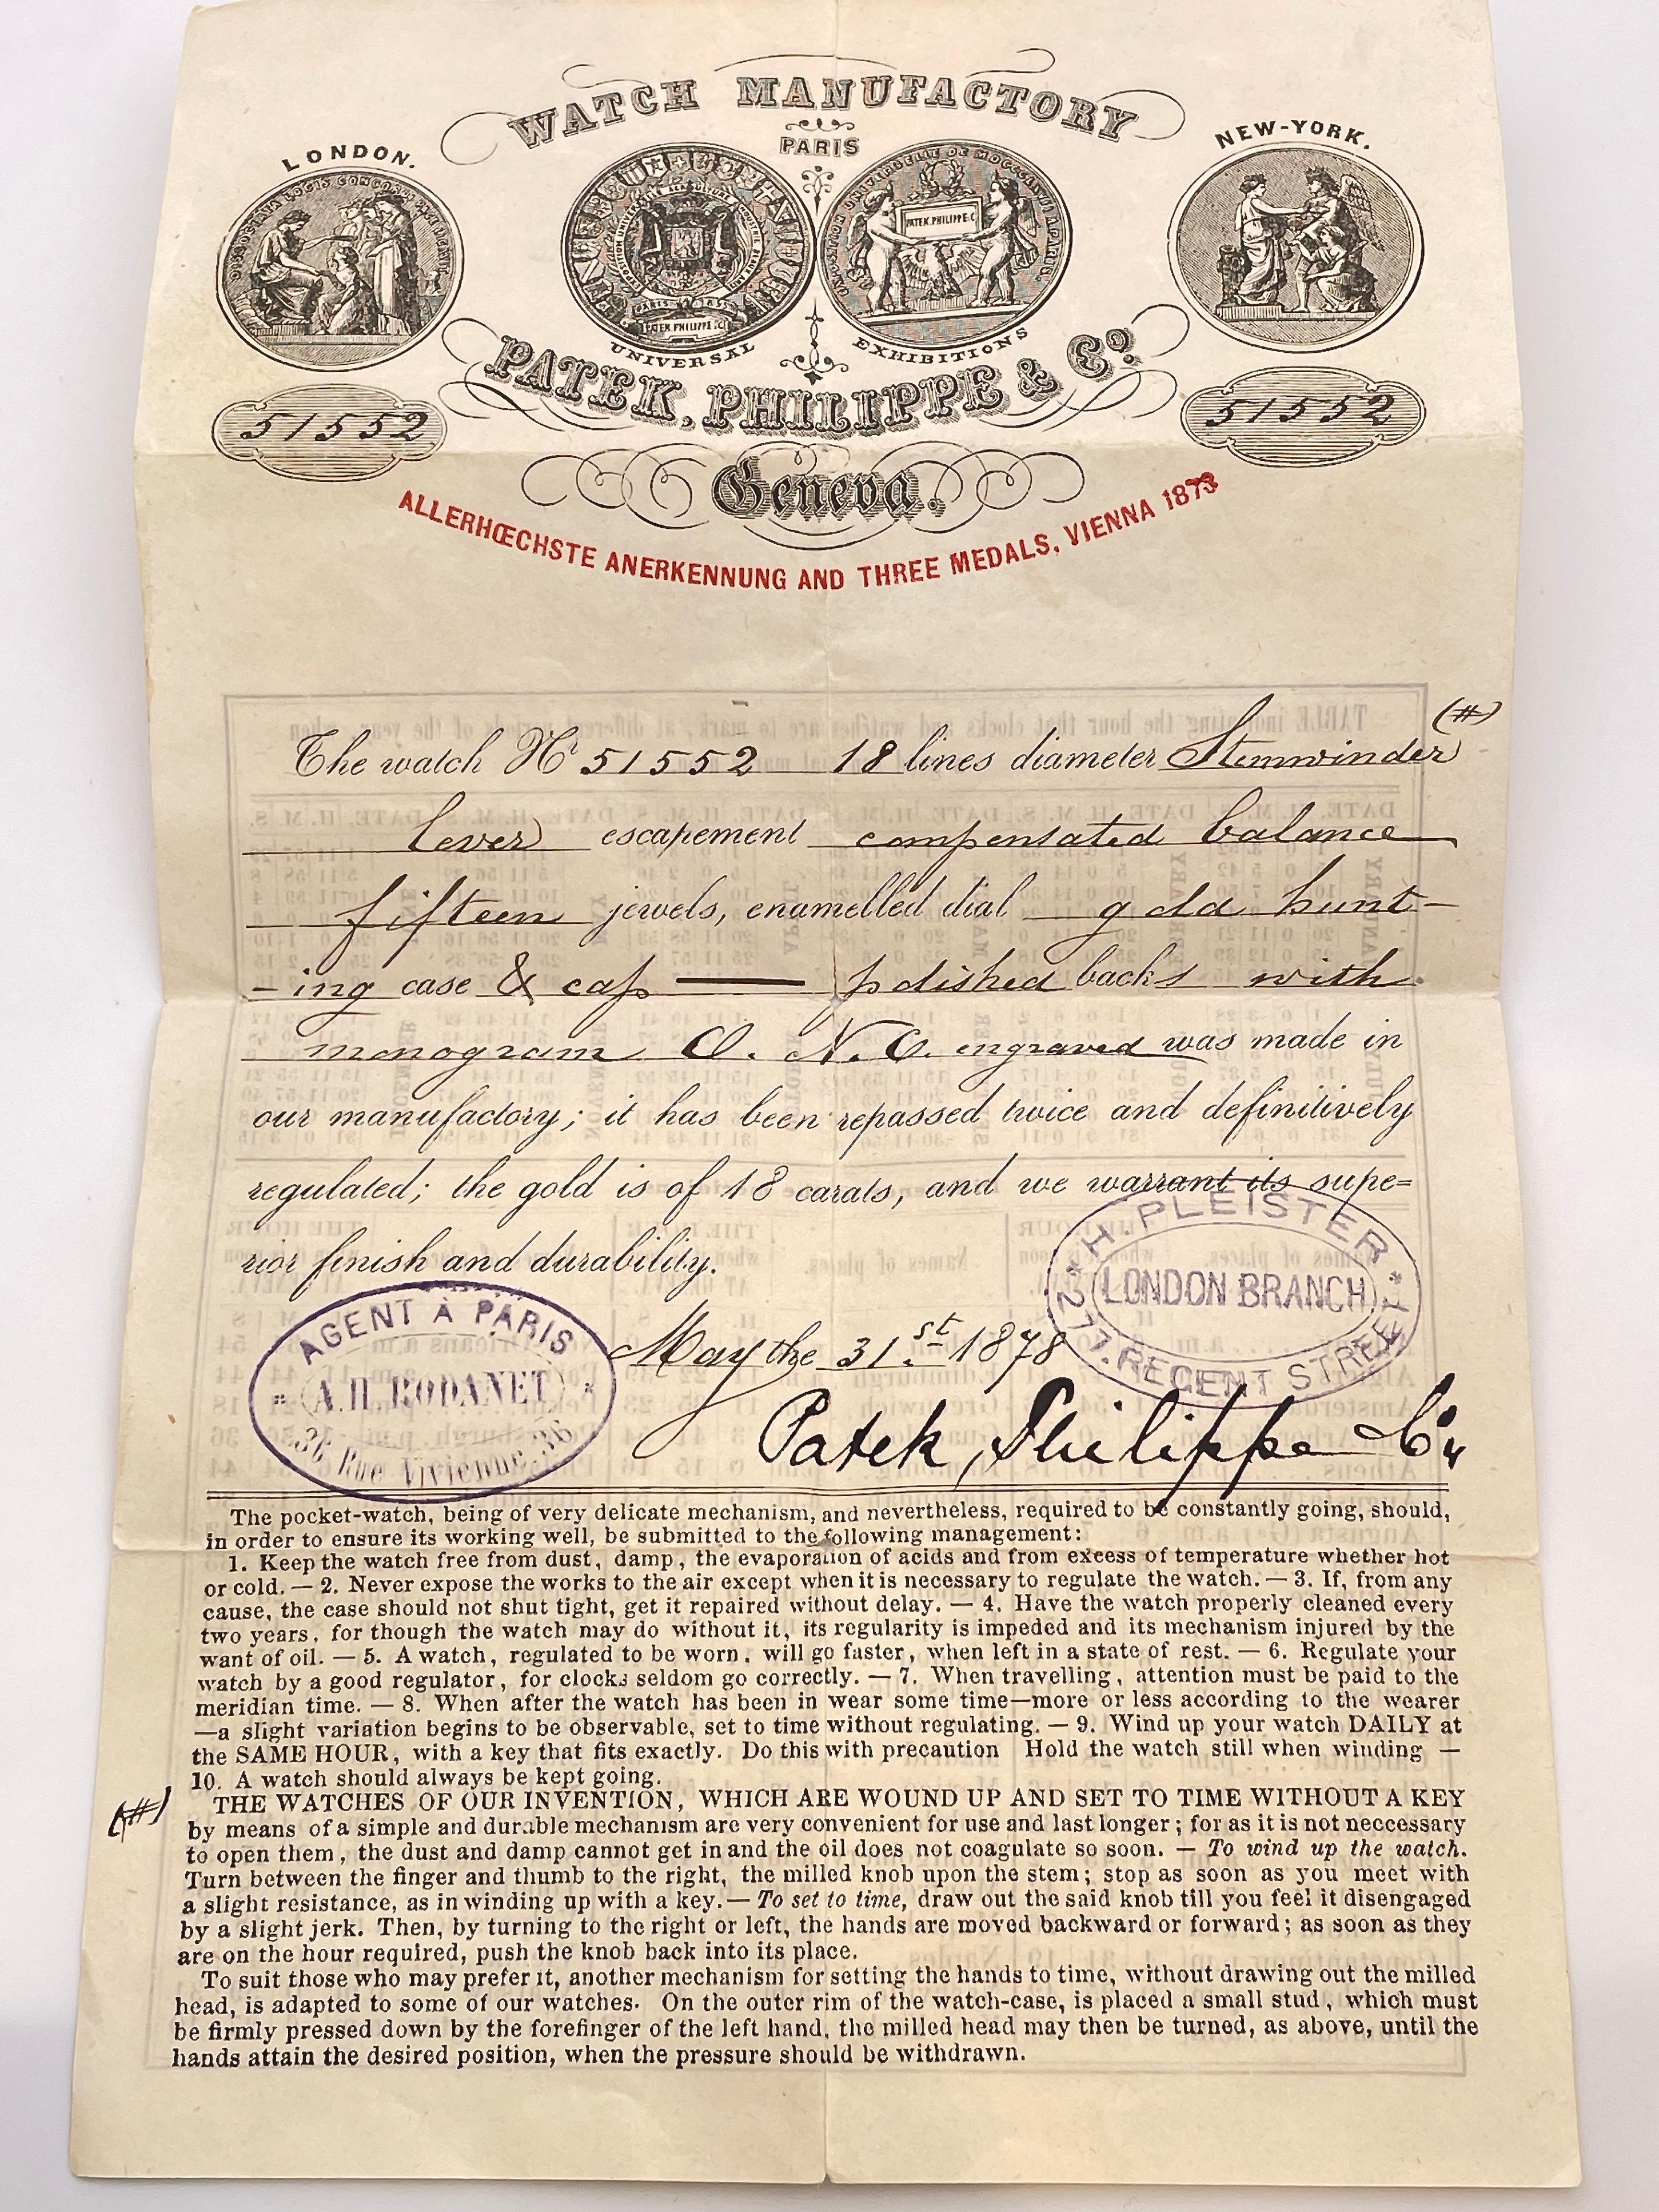 WATCH MANUFACTORY
LONDON.
PARIS
NEW-YORK.
PARIS 1855
PATEK PHILIPPE & C
EXPOSITION UNIVERSELLE DE
PATEK PHILIPPE & C
UNIVERSAL EXHIBITIONS
PATEK, PHILIPPE & Cº.
51552
51552
Geneva.
ALLERHŒCHSTE ANERKENNUNG AND THREE MEDALS, VIENNA 1873
(#)
The watch Nº 51552 18 lines diameter Stemwinder
lever escapement compensated balance
fifteen jewels, enamelled dial gold hunt-
-ing case & cap polished backs with
monogram O. N. O. engraved was made in
our manufactory; it has been repassed twice and definitively
regulated; the gold is of 18 carats, and we warrant its supe=
rior finish and durability.
H. PLEISTER
LONDON BRANCH
277. REGENT STREET
AGENT À PARIS
A.H. RODANET
36 Rue Vivienne. 36
May the 31.st 1878
Patek, Philippe & Co
The pocket-watch, being of very delicate mechanism, and nevertheless, required to be constantly going, should,
in order to ensure its working well, be submitted to the following management:
1. Keep the watch free from dust, damp, the evaporation of acids and from excess of temperature whether hot
or cold. — 2. Never expose the works to the air except when it is necessary to regulate the watch. — 3. If, from any
cause, the case should not shut tight, get it repaired without delay. — 4. Have the watch properly cleaned every
two years, for though the watch may do without it, its regularity is impeded and its mechanism injured by the
want of oil. — 5. A watch, regulated to be worn, will go faster, when left in a state of rest. — 6. Regulate your
watch by a good regulator, for clocks seldom go correctly. — 7. When travelling, attention must be paid to the
meridian time. — 8. When after the watch has been in wear some time—more or less according to the wearer
—a slight variation begins to be observable, set to time without regulating. — 9. Wind up your watch DAILY at
the SAME HOUR, with a key that fits exactly. Do this with precaution Hold the watch still when winding —
10. A watch should always be kept going.
(#)
THE WATCHES OF OUR INVENTION, WHICH ARE WOUND UP AND SET TO TIME WITHOUT A KEY
by means of a simple and durable mechanism are very convenient for use and last longer; for as it is not neccessary
to open them, the dust and damp cannot get in and the oil does not coagulate so soon. — To wind up the watch.
Turn between the finger and thumb to the right, the milled knob upon the stem; stop as soon as you meet with
a slight resistance, as in winding up with a key. — To set to time, draw out the said knob till you feel it disengaged
by a slight jerk. Then, by turning to the right or left, the hands are moved backward or forward; as soon as they
are on the hour required, push the knob back into its place.
To suit those who may prefer it, another mechanism for setting the hands to time, without drawing out the milled
head, is adapted to some of our watches. On the outer rim of the watch-case, is placed a small stud, which must
be firmly pressed down by the forefinger of the left hand, the milled head may then be turned, as above, until the
hands attain the desired position, when the pressure should be withdrawn.